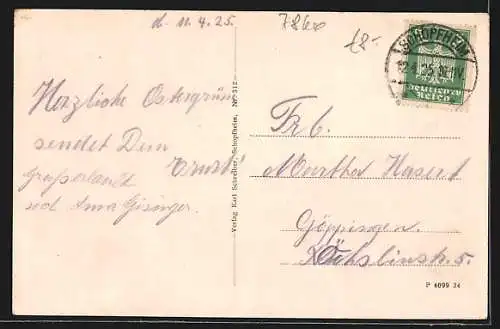 d. 11.4.25.
7860
18.-
SCHOPFHEIM
12.4.25
Deutsches
Reich
Herzliche Ostergrüsse
sendet Dein
Ernst
und Anna Gisinger.
Verlag Karl Schreiber, Schopfheim. No. 312
Frl.
Martha Hasert
Göppingen.
5.
P 4099 24